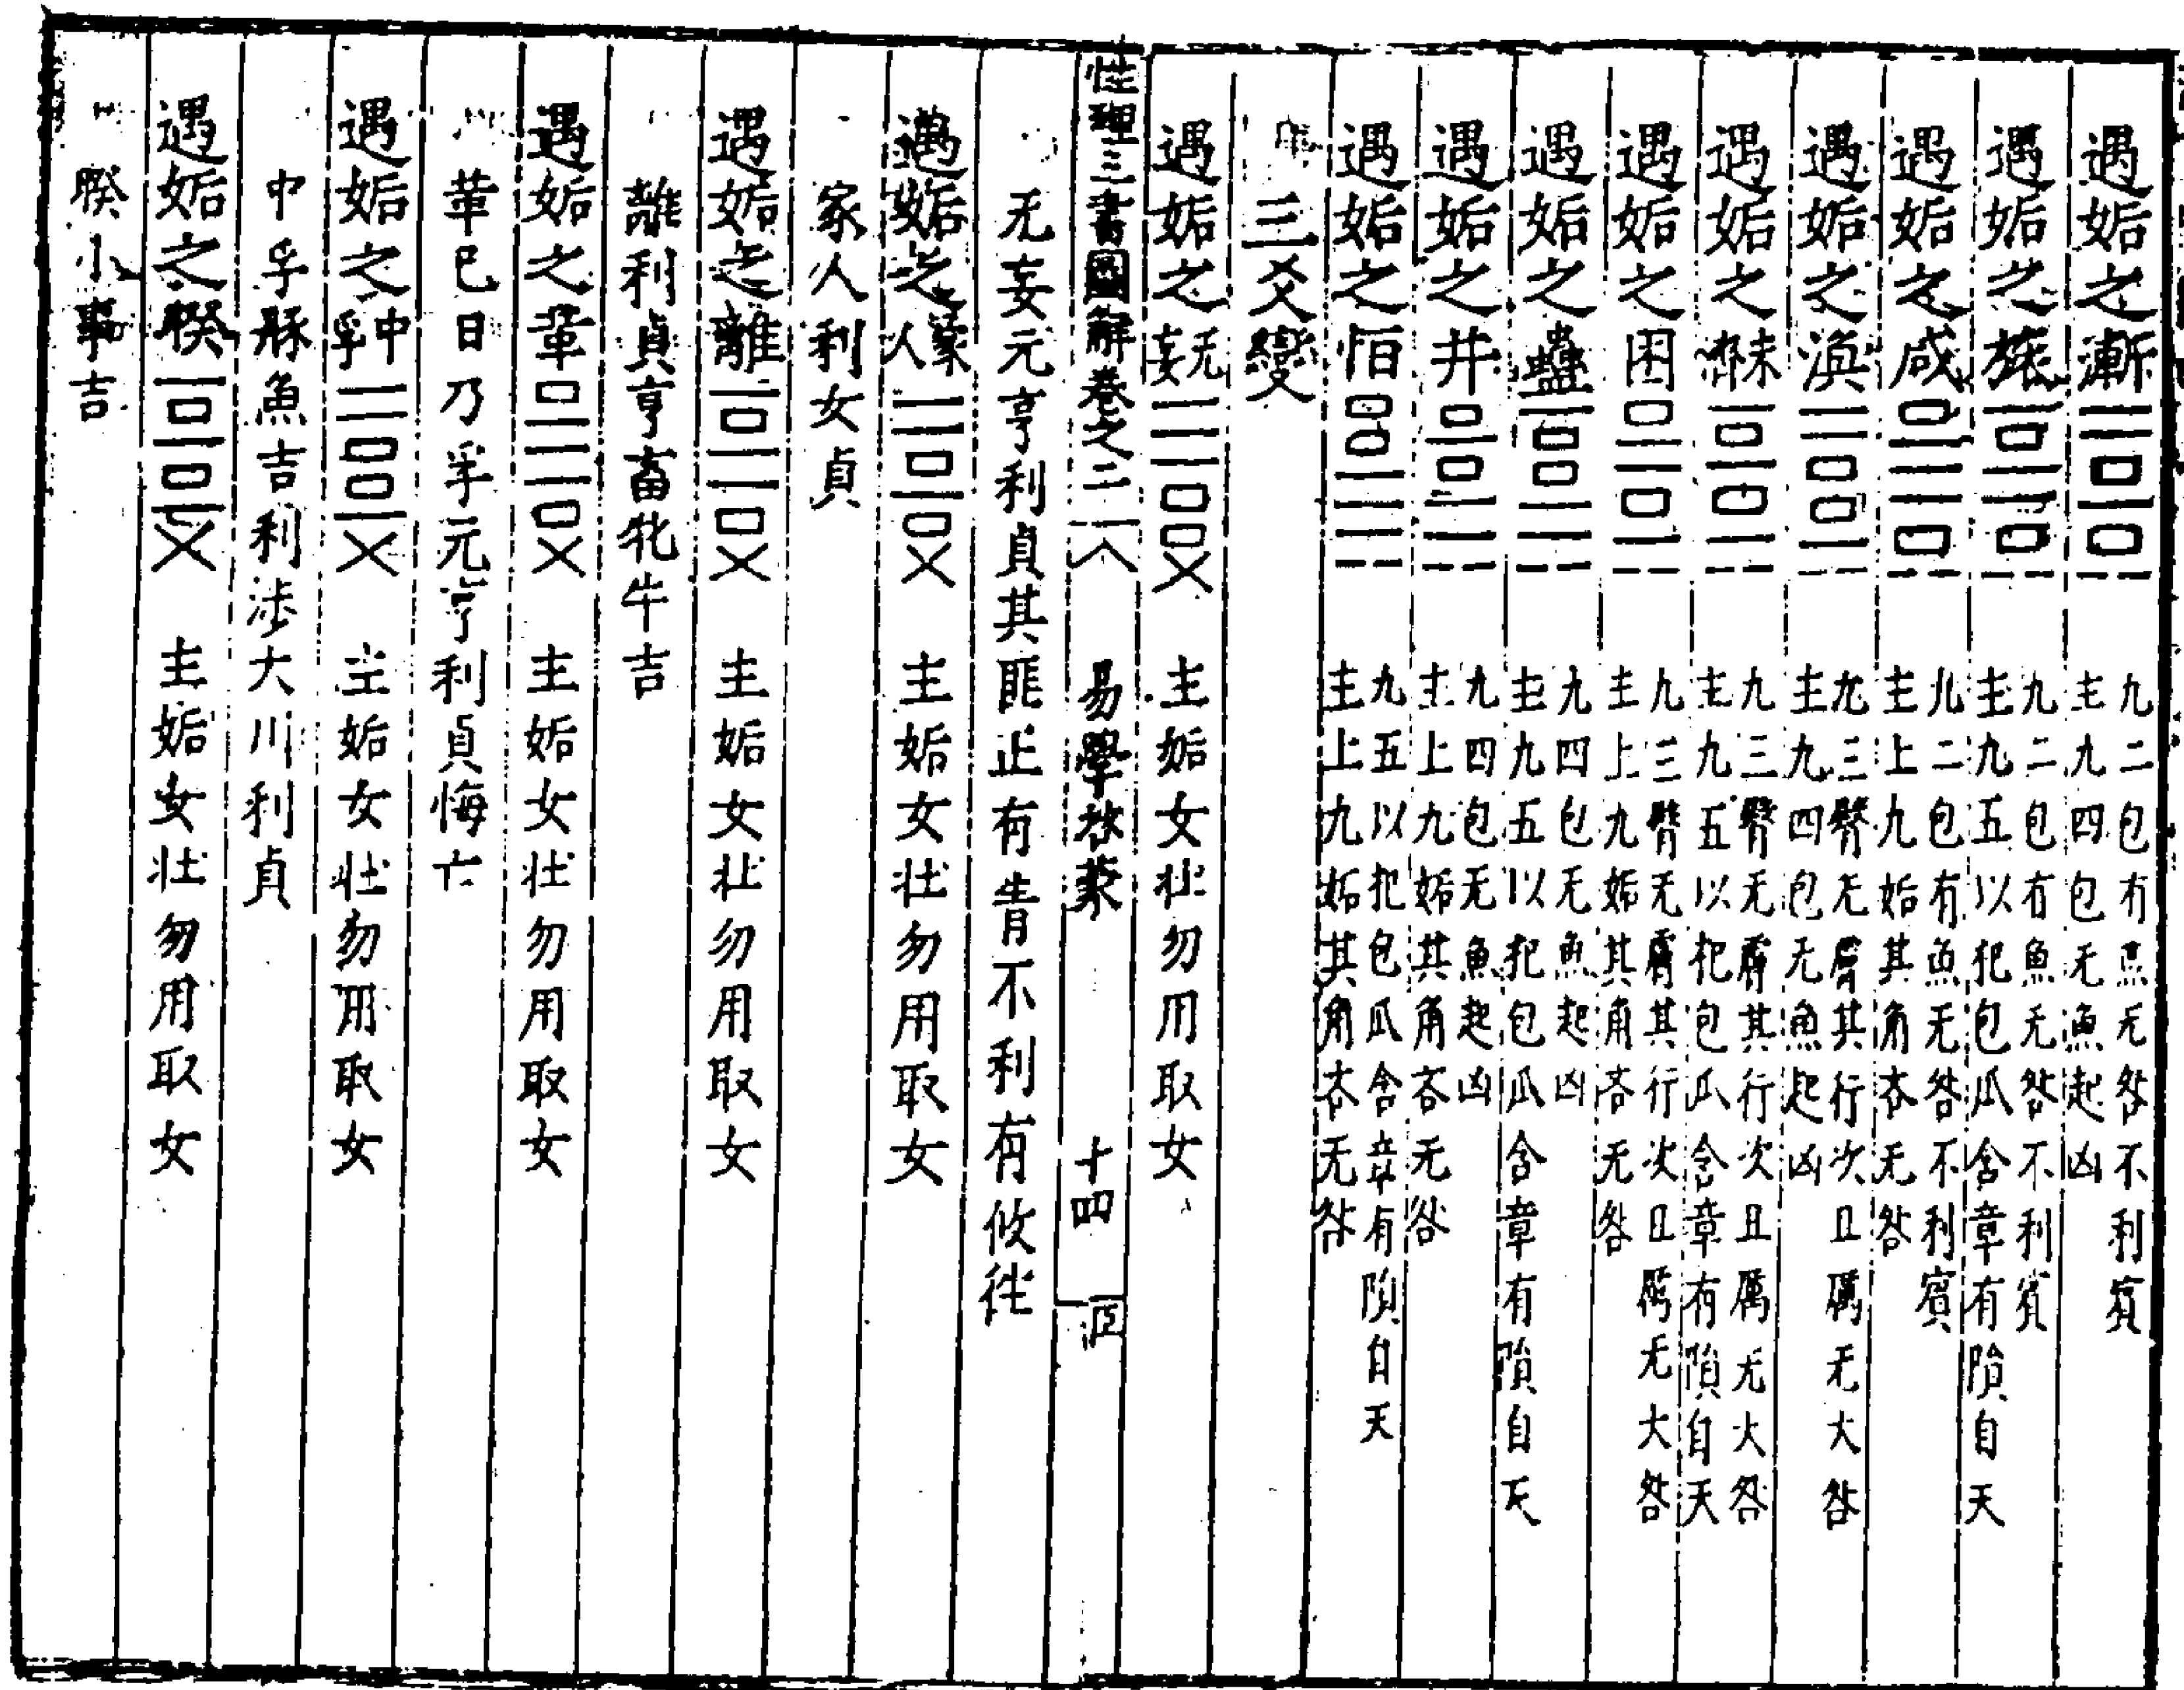 遇姤之漸 九二包有魚无咎不利賓
主九四包无魚起凶
遇姤之旅 九二包有魚无咎不利賓
主九五以杞包瓜含章有隕自天
遇姤之咸 九二包有魚无咎不利賓
主上九姤其角吝无咎
遇姤之渙 九三臀无膚其行次且厲无大咎
主九四包无魚起凶
遇姤之未濟 九三臀无膚其行次且厲无大咎
主九五以杞包瓜含章有隕自天
遇姤之困 九三臀无膚其行次且厲无大咎
主上九姤其角吝无咎
遇姤之蠱 九四包无魚起凶
主九五以杞包瓜含章有隕自天
遇姤之井 九四包无魚起凶
主上九姤其角吝无咎
遇姤之恒 九五以杞包瓜含章有隕自天
主上九姤其角吝无咎
三爻變
遇姤之无妄 主姤女壯勿用取女
性理三書圖解卷之二 易學啟蒙 十四
无妄元亨利貞其匪正有眚不利有攸往
遇姤之家人 主姤女壯勿用取女
家人利女貞
遇姤之離 主姤女壯勿用取女
離利貞亨畜牝牛吉
遇姤之革 主姤女壯勿用取女
革巳日乃孚元亨利貞悔亡
遇姤之中孚 主姤女壯勿用取女
中孚豚魚吉利涉大川利貞
遇姤之睽 主姤女壯勿用取女
睽小事吉